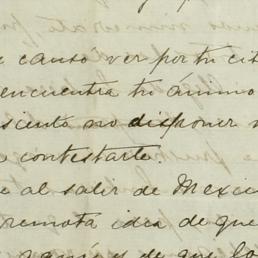 e causó ver por tu cit
encuentra tu ánimo
siento no disponer
contestarte.
e al salir de Mexic
remota idea de que
y de que